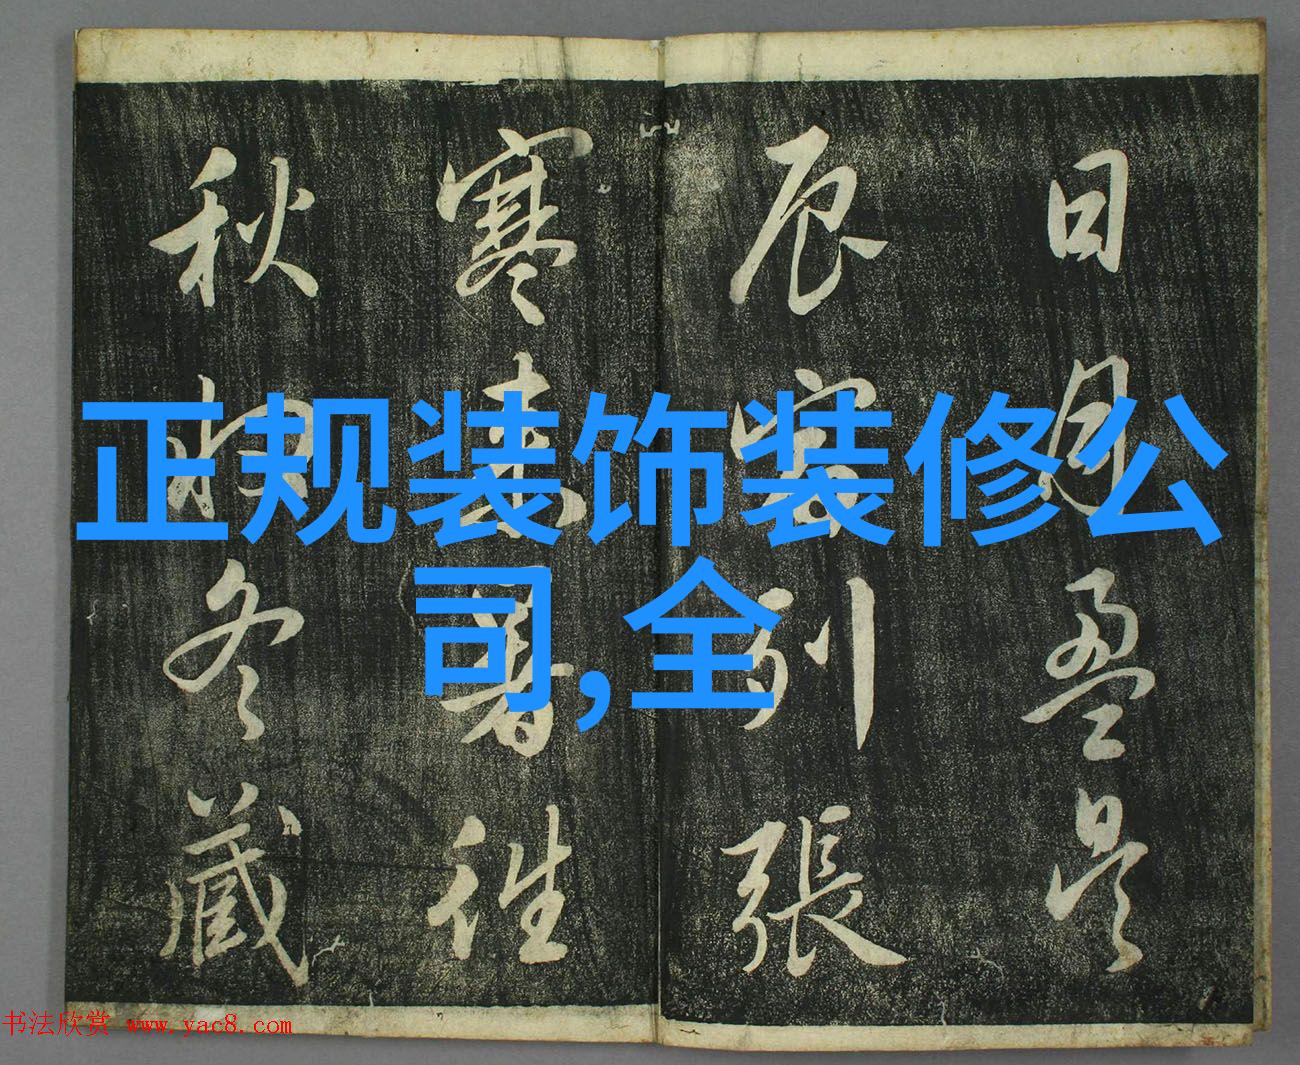 日月盈昃
辰宿列張
寒来暑往
秋收冬藏
正规装饰装修公
司,全
书法欣赏 www.yac8.com